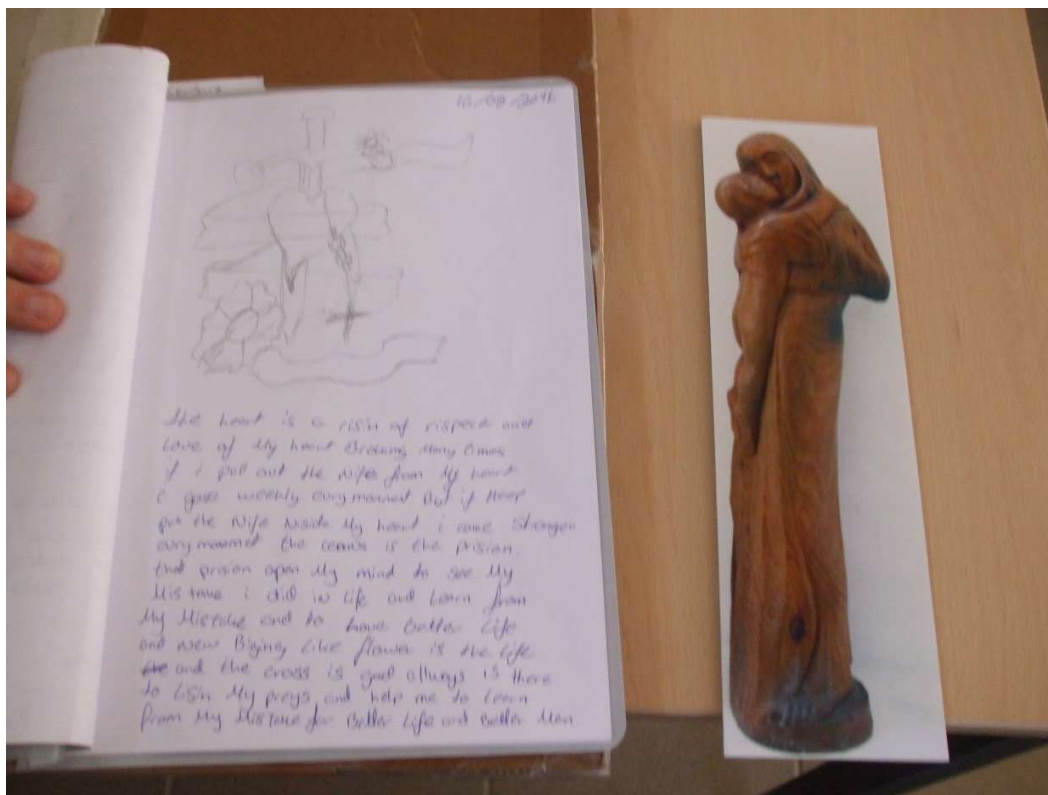 The heart is a risin of rispect and
Love of My heart Broking Many times
if i pull out the Nifes from My heart
i goes weekly evrymomment But if Keep
put the Nife Nside My heart i came Stronger
evrymommet the is the prision.
that prision open My mind to see My
Mistake i did in life and Learn from
My Mistake and to have Better Life
and New Biging Like flower is the life
and the cross is god allways is there
to lisin My preys and help me to Learn
from My Mistake for Better Life and Better Man